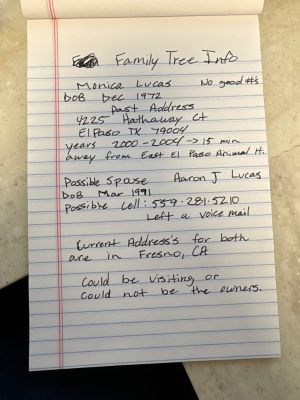 Family Tree Info
Monica Lucas No good #'s
DOB Dec 1972
Past Address
4225 Hathaway Ct
El Paso TX 79004
years 2000-2004 → 15 min
away from East El Paso Animal H.
Possible Spouse Aaron J Lucas
DOB Mar 1991
Possible Cell: 559.281.5210
Left a voice mail
Current Address's for both
are in Fresno, CA
Could be visiting or
Could not be the owners.